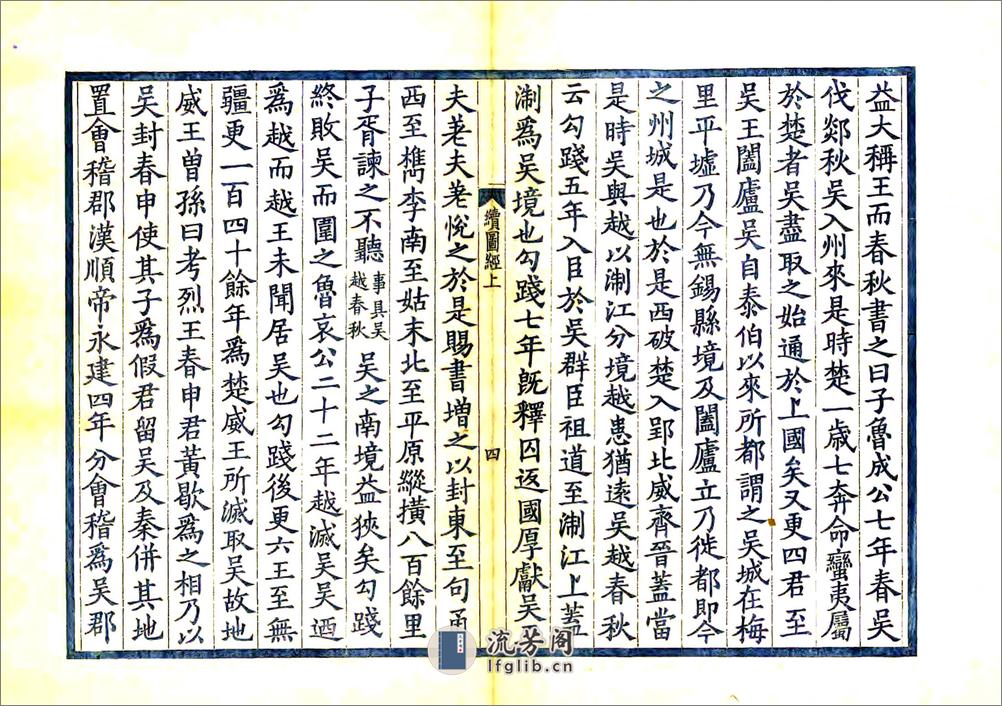 益大稱王而春秋書之曰子魯成公七年春吳
伐郯秋吳入州來是時楚一歲七奔命蠻夷屬
於楚者吳盡取之始通於上國矣又更四君至
吳王闔廬吳自泰伯以來所都謂之吳城在梅
里平墟乃今無錫縣境及闔廬立乃徙都即今
之州城是也於是西破楚入郢北威齊晉蓋當
是時吳與越以淛江分境越患猶遠吳越春秋
云勾踐五年入臣於吳群臣祖道至淛江上蓋
淛爲吳境也勾踐七年旣釋囚返國厚獻吳王
續圖經上
四
夫差夫差悅之於是賜書增之以封東至句甬
西至檇李南至姑末北至平原縱橫八百餘里
子胥諫之不聽事具吳越春秋吳之南境益狹矣勾踐
終敗吳而圍之魯哀公二十二年越滅吳吳迺
爲越而越王未聞居吳也勾踐後更六王至無
疆更一百四十餘年爲楚威王所滅取吳故地
威王曾孫曰考烈王春申君黃歇爲之相乃以
吳封春申使其子爲假君留吳及秦併其地
置會稽郡漢順帝永建四年分會稽爲吳郡
流芳阁
lfglib.cn